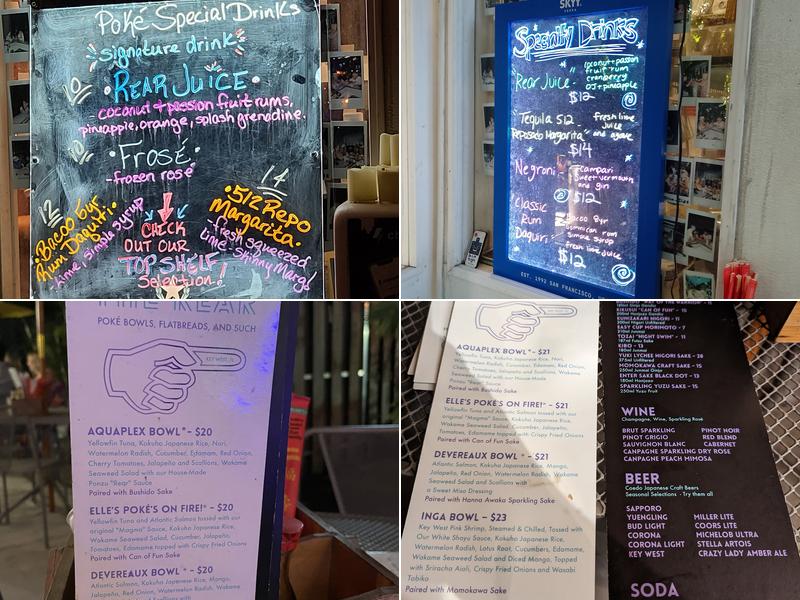 Poké Special Drinks
signature drink
10
REAR JUICE
coconut + passion fruit rums,
pineapple, orange, splash grenadine.
10
Frosé
-frozen rosé
12
Bacoo 8yr
Rum Daquiri
Lime, simple syrup
CHECK
OUT OUR
TOP SHELF
Selection!
14
512 Repo
Margarita
-fresh squeezed
lime
Skinny Marg!
SKYY
Specialty Drinks
Rear Juice
coconut + passion
fruit rum
cranberry
OJ + pineapple
$12
"Tequila 512
Reposado Margarita"
fresh lime
juice
and agave
$14
Negroni
campari
sweet vermouth
and gin
$12
Classic
Rum
Daquiri
Bacoo 8yr
dominican rum
simple syrup
fresh lime juice
$12
EST. 1992 SAN FRANCISCO,
THE REAR
POKÉ BOWLS, FLATBREADS, AND SUCH
KEY WEST, FL
AQUAPLEX BOWL* - $20
Yellowfin Tuna, Kokuho Japanese Rice, Nori,
Watermelon Radish, Cucumber, Edamam, Red Onion,
Cherry Tomatoes, Jalapeño and Scallions, Wakame
Seaweed Salad with our House-Made
Ponzu "Rear" Sauce
Paired with Bushido Sake
ELLE'S POKÉ'S ON FIRE!* - $20
Yellowfin Tuna and Atlantic Salmon tossed with our
original "Magma" Sauce, Kokuho Japanese Rice,
Wakame Seaweed Salad, Cucumber, Jalapeno,
Tomatoes, Edamame topped with Crispy Fried Onions
Paired with Can of Fun Sake
DEVEREAUX BOWL * - $20
Atlantic Salmon, Kokuho Japanese Rice, Mango,
Jalapeño, Red Onion, Watermelon Radish, Wakame
Seaweed Salad and Scallions with
AQUAPLEX BOWL* - $21
Yellowfin Tuna, Kokuho Japanese Rice, Nori,
Watermelon Radish, Cucumber, Edamam, Red Onion,
Cherry Tomatoes, Jalapeño and Scallions, Wakame
Seaweed Salad with our House-Made
Ponzu "Rear" Sauce
Paired with Bushido Sake
ELLE'S POKÉ'S ON FIRE!* - $21
Yellowfin Tuna and Atlantic Salmon tossed with our
original "Magma" Sauce, Kokuho Japanese Rice,
Wakame Seaweed Salad, Cucumber, Jalapeno,
Tomatoes, Edamame topped with Crispy Fried Onions
Paired with Can of Fun Sake
DEVEREAUX BOWL * - $21
Atlantic Salmon, Kokuho Japanese Rice, Mango,
Jalapeño, Red Onion, Watermelon Radish, Wakame
Seaweed Salad and Scallions with
a Sweet Miso Dressing
Paired with Hanna Awaka Sparkling Sake
INGA BOWL - $23
Key West Pink Shrimp, Steamed & Chilled, Tossed with
Our White Shoyu Sauce, Kokuho Japanese Rice,
Watermelon Radish, Lotus Root, Cucumbers, Edamame,
Wakame Seaweed Salad and Diced Mango, Topped
with Sriracha Aioli, Crispy Fried Onions and Wasabi
Tobiko
Paired with Momokawa Sake
KIKUSUI "CAN OF FUN" - 15
KUNIZAKARI NIGORI - 15
EASY CUP MORIMOTO - 7
TOZAI "NIGHT SWIM" - 11
187ml Futsu Sake
KIBO - 13
180ml Junmai
YUKI LYCHEE NIGORI SAKE - 28
375ml Unfiltered
MOMOKAWA CRAFT SAKE - 15
250ml Junmai Ginjo
ENTER SAKE BLACK DOT - 13
180ml Honjozo
SPARKLING YUZU SAKE - 15
250ml Yuzu Fruit
WINE
Champagne, Wine, Sparkling Rosé
BRUT SPARKLING
PINOT GRIGIO
SAUVIGNON BLANC
CANPAGNE SPARKLING DRY ROSE
CANPAGNE PEACH MIMOSA
PINOT NOIR
RED BLEND
CABERNET
BEER
Coedo Japanese Craft Beers
Seasonal Selections - Try them all
SAPPORO
YUENGLING
BUD LIGHT
CORONA
CORONA LIGHT
KEY WEST
MILLER LITE
COORS LITE
MICHELOB ULTRA
STELLA ARTOIS
CRAZY LADY AMBER ALE
SODA